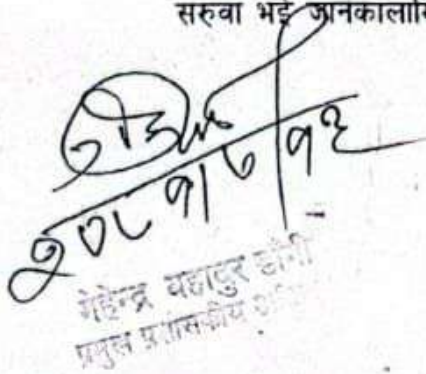 सरुवा भई जानकालागि
२०८१।७।१२
गेहेन्द्र बहादुर डाँगी
प्रमुख प्रशासकीय